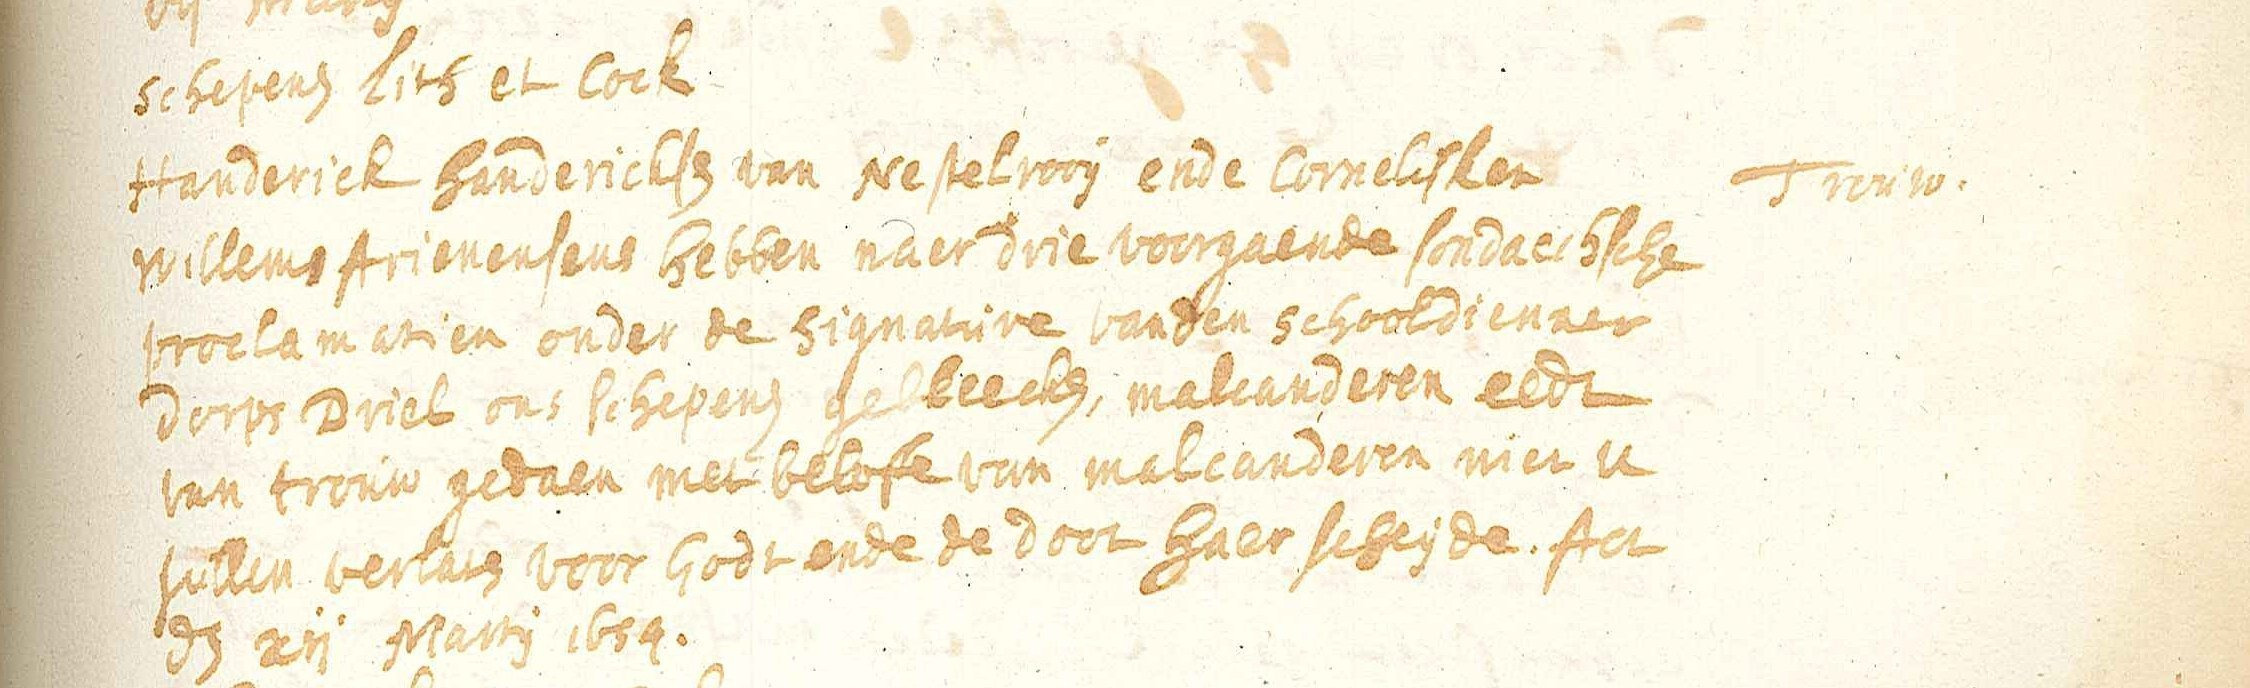 schepens Lith et Cock
Handerick Handericksς van Nestelrooij ende Cornelisken
Trouw.
Willems Arienensens hebben naer drie voorgaende sondaechsche
proclamatien onder de signature vanden schooldienaer
dorps Driel ons schepens gebleecken, malcanderen eedt
van trouw gedaen met belofte van malcanderen niet te
sullen verlaten voor Godt ende de doot haer scheijde. Act
den xij Martij 1654.